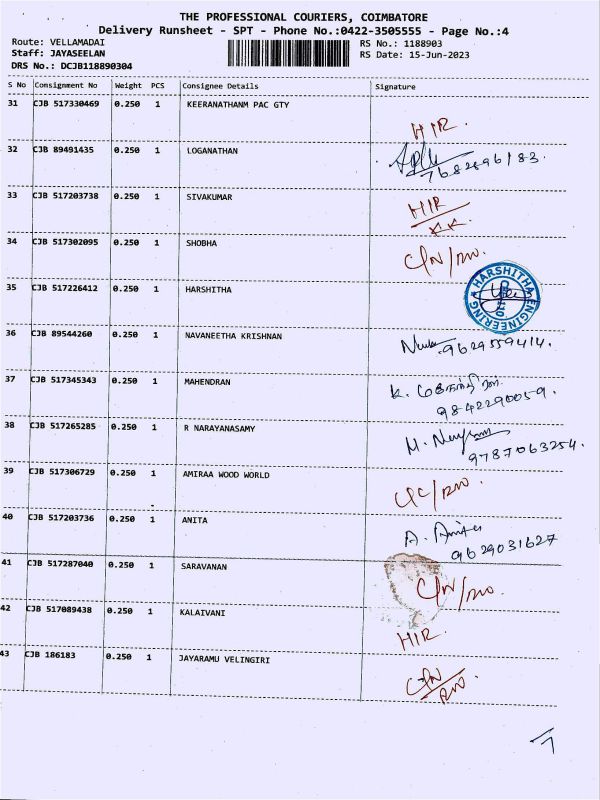 THE PROFESSIONAL COURIERS, COIMBATORE
Delivery Runsheet - SPT - Phone No.:0422-3505555 - Page No.:4
Route: VELLAMADAI RS No.: 1188903
Staff: JAYASEELAN RS Date: 15-Jun-2023
DRS No.: DCJB118890304
S No Consignment No Weight PCS Consignee Details Signature
31 CJB 517330469 0.250 1 KEERANATHANM PAC GTY HIR.
32 CJB 89491435 0.250 1 LOGANATHAN
7682896183.
33 CJB 517203738 0.250 1 SIVAKUMAR HIR
34 CJB 517302095 0.250 1 SHOBHA
35 CJB 517226412 0.250 1 HARSHITHA HARSHITHA ENGINEERING
36 CJB 89544260 0.250 1 NAVANEETHA KRISHNAN 9629559414.
37 CJB 517345343 0.250 1 MAHENDRAN K.
9842290059.
38 CJB 517265285 0.250 1 R NARAYANASAMY
9787063254.
39 CJB 517306729 0.250 1 AMIRAA WOOD WORLD
40 CJB 517203736 0.250 1 ANITA A. Anita
9629031627
41 CJB 517287040 0.250 1 SARAVANAN
42 CJB 517089438 0.250 1 KALAIVANI HIR.
43 CJB 186183 0.250 1 JAYARAMU VELINGIRI